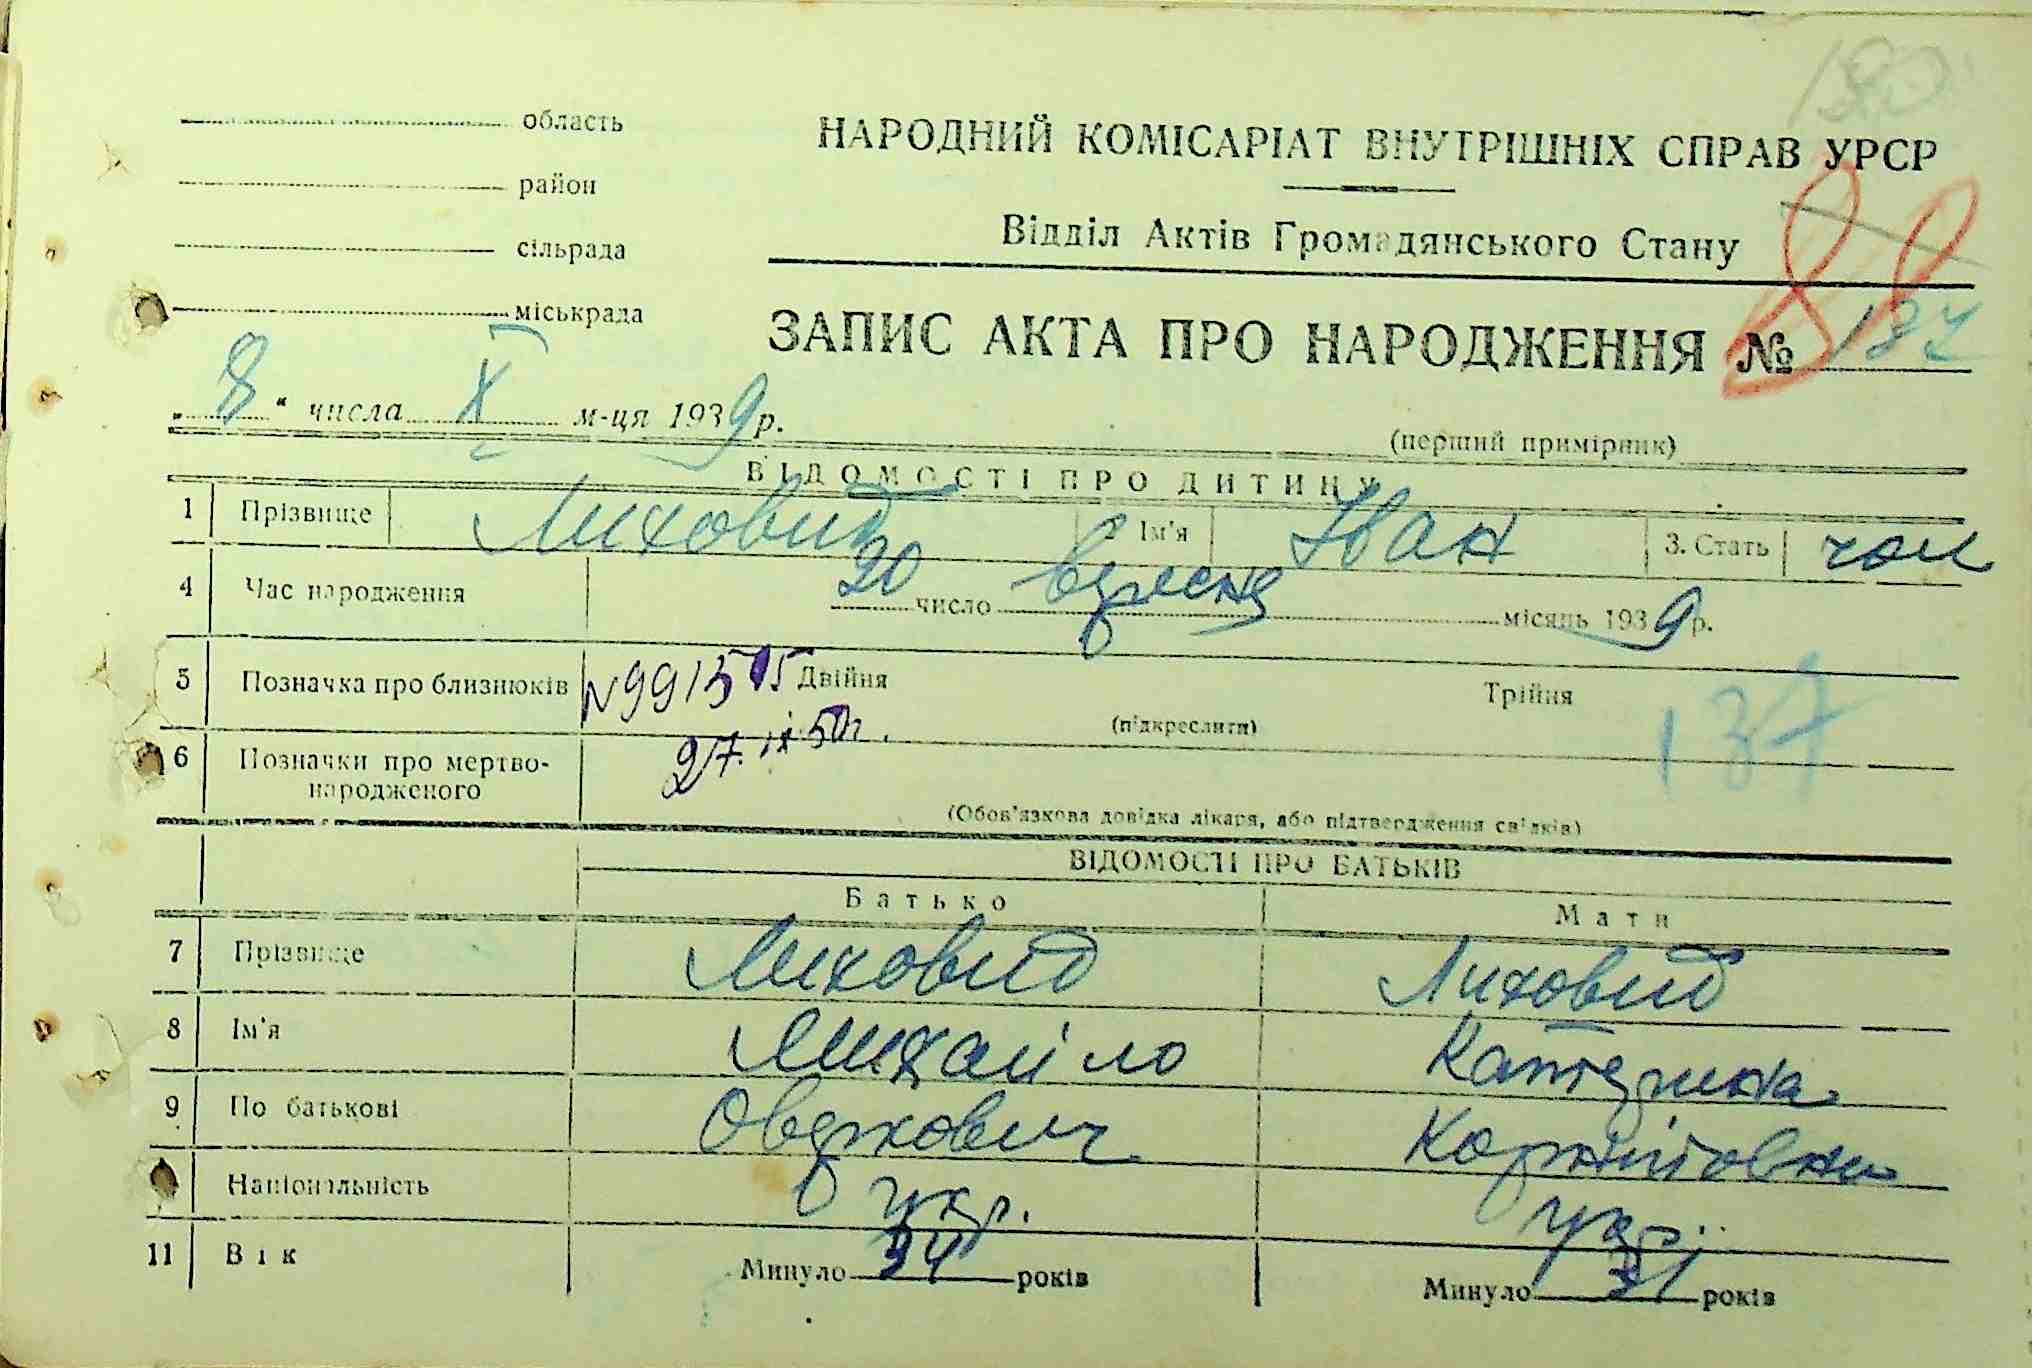 область
район
сільрада
міськрада
НАРОДНИЙ КОМІСАРІАТ ВНУТРІШНІХ СПРАВ УРСР
Відділ Актів Громадянського Стану
ЗАПИС АКТА ПРО НАРОДЖЕННЯ № 137
„8“ числа X м-ця 1939 р.
(перший примірник)
ВІДОМОСТІ ПРО ДИТИНУ
1 Прізвище Лиховид 2 Ім'я Іван 3. Стать чол
4 Час народження 20 число вересня місяць 1939 р.
5 Позначка про близнюків N991515 Двійня Трійня 137
(підкреслити)
27.IX.50г.
6 Позначки про мертво-
народженого
(Обов'язкова довідка лікаря, або підтвердження свідків)
ВІДОМОСТІ ПРО БАТЬКІВ
Батько Мати
7 Прізвище Лиховид Лиховид
8 Ім'я Михайло Катерина
9 По батькові Оверкович
Національність укр. укр.
11 Вік Минуло 34 років Минуло 31 років